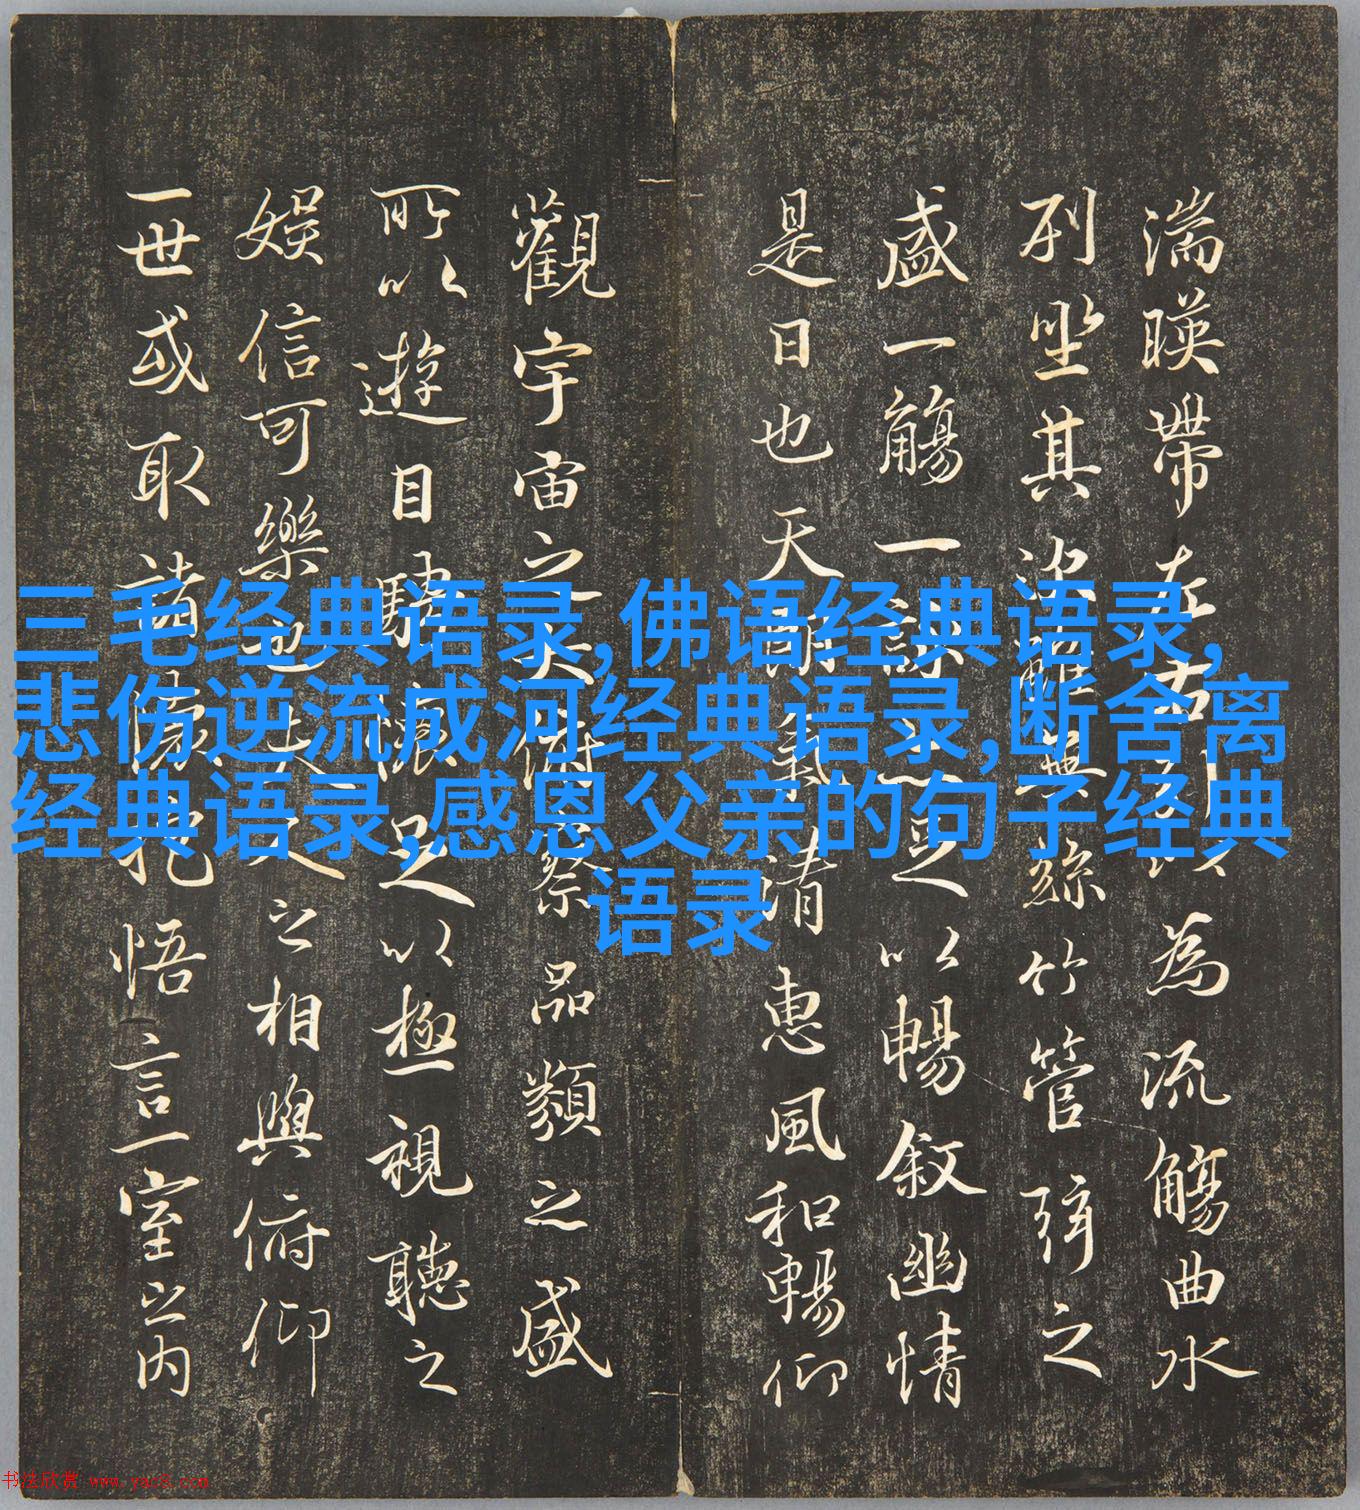 三毛经典语录,佛语经典语录,
悲伤逆流成河经典语录,断舍离
经典语录,感恩父亲的句子经典
语录
湍暎帶左右引以為流觴曲水
列坐其次雖無絲竹管弦之
盛一觴一詠亦足以暢敘幽情
是日也天朗氣清惠風和暢仰
觀宇宙之大俯察品類之盛
所以遊目騁懷足以極視聽之
娛信可樂也夫人之相與俯仰
一世或取諸懷抱悟言一室之内
书法欣赏 www.yac8.com